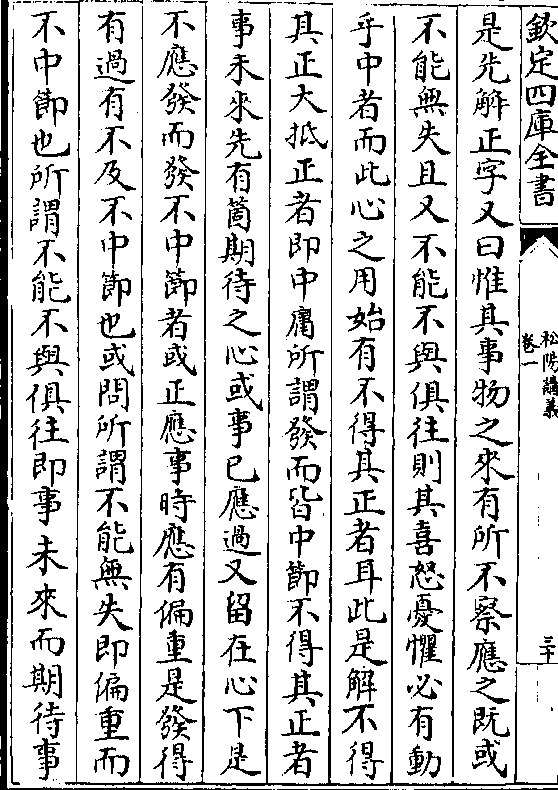 欽定四庫全書
松陽講義
卷一
三十
是先解正字又曰惟其事物之來有所不察應之既或
不能無失且又不能不與俱往則其喜怒憂懼必有動
乎中者而此心之用始有不得其正者耳此是解不得
其正大抵正者即中庸所謂發而皆中節不得其正者
事未來先有箇期待之心或事已應過又留在心下是
不應發而發不中節者或正應事時應有偏重是發得
有過有不及不中節也或問所謂不能無失即偏重而
不中節也所謂不能不與俱往即事未來而期待事